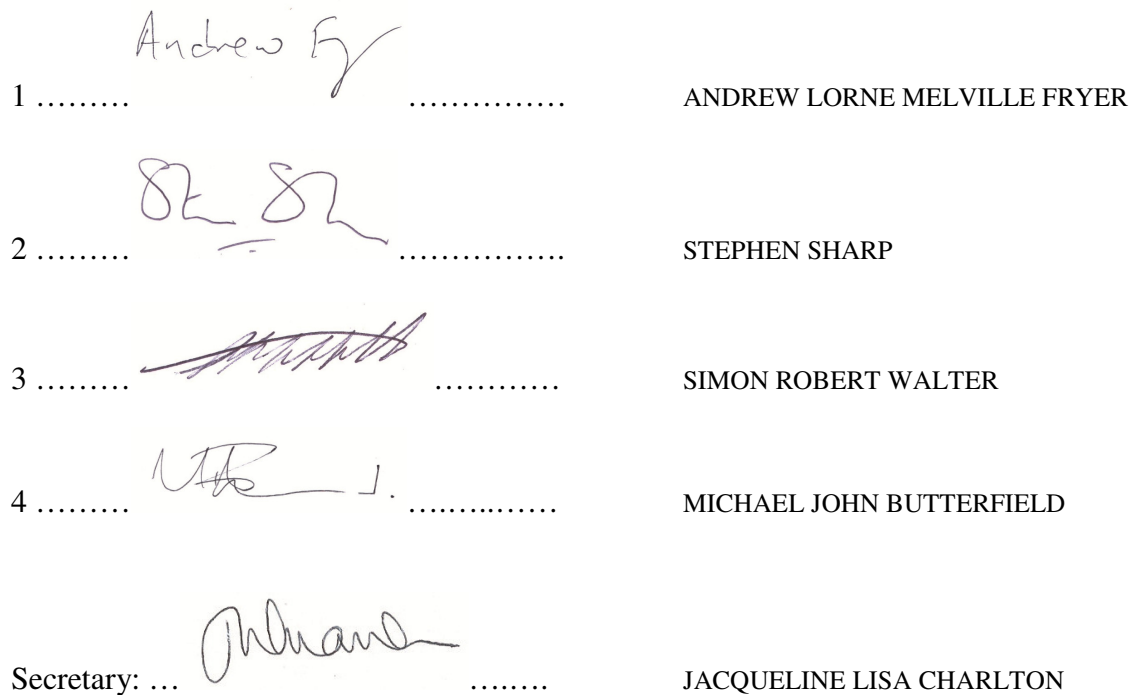 Andrew
1 ……… …………… ANDREW LORNE MELVILLE FRYER
2 ……… ……………. STEPHEN SHARP
3 ……… ………… SIMON ROBERT WALTER
4 ……… ….…..…… MICHAEL JOHN BUTTERFIELD
Secretary: … ….…. JACQUELINE LISA CHARLTON